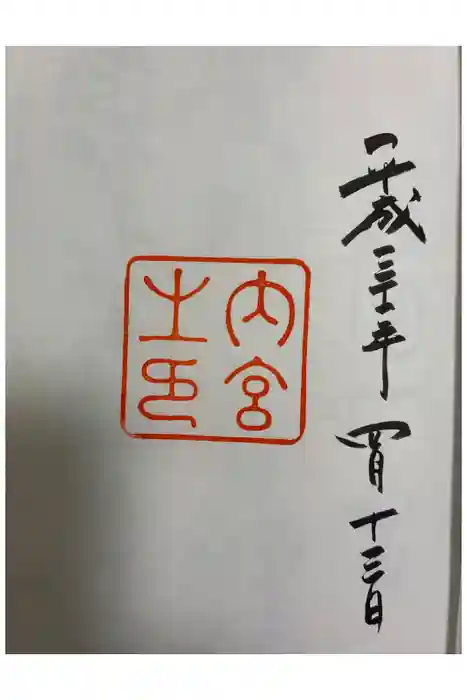 平成三十一年四月十三日
内宮
之印